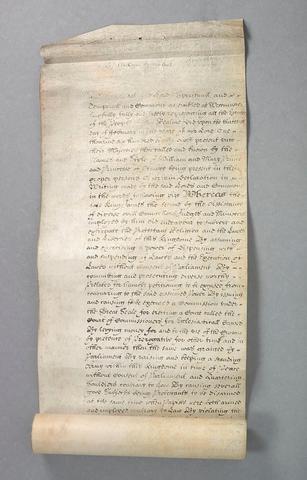 Lords Spirituall and
Temporall and Commons assembled at Westminster
lawfully fully and freely representing all the Estates
of the People Realme did upon the thirteenth
day of February in the yeare of our Lord One
thousand six hundred eighty eight present unto
their Majesties then called and known by the
Names and Stile of William and Mary Prince
and Princesse of Orange being present in their
proper persons a certain Declaration in
Writing made by the said Lords and Commons
in the words following viz Whereas the
late King James the second by the Assistance
of diverse evill Councellors Judges and Ministers
imployed by him did endeavour to subvert and
extirpate the Protestant Religion and the Lawes
and Liberties of this Kingdome By assuming
and exercising a Power of Dispensing with
and suspending of Lawes and the Execution of
Lawes without consent of Parliament By
committing and prosecuting diverse worthy
Prelates for humbly petitioning to be excused from
concurring to the said assumed Power By issuing
and causing to be executed a Commission under
the Great Seale for erecting a Court called the
Court of Commissioners for Ecclesiasticall Causes
By levying money for and to the use of the Crowne
by pretence of Prerogative for other time and in
other manner then the same was granted by
Parliament By raising and keeping a standing
Army within this Kingdome in time of Peace
without consent of Parliament and Quartering
Souldiers contrary to Law By causing severall
good Subjects being Protestants to be disarmed
at the same time when Papists were both armed
and imployed contrary to Law By violating the